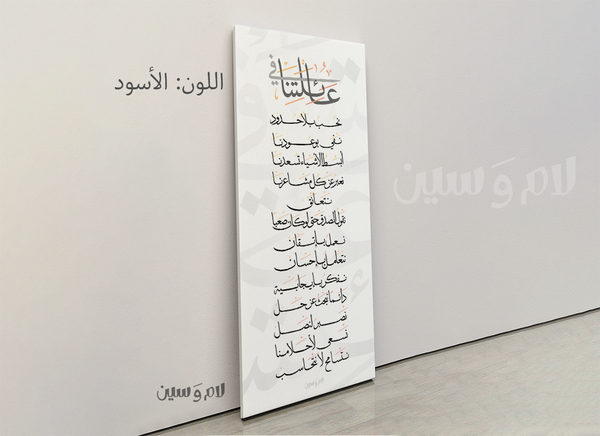 اللون: الأسود
في عائلتنا
نحب بلا حدود
نفي بوعودنا
أبسط الأشياء تسعدنا
نعبر عن كل مشاعرنا
نتعانق
نقول الصدق حتى لو كان صعبا
نعمل بإتقان
نتعامل بإحسان
نفكر بإيجابية
دائما نبحث عن حل
نصبر لنصل
نسعى لأحلامنا
نتسامح لا نتحاسب
لام و سين
لام و سين
لام و سين